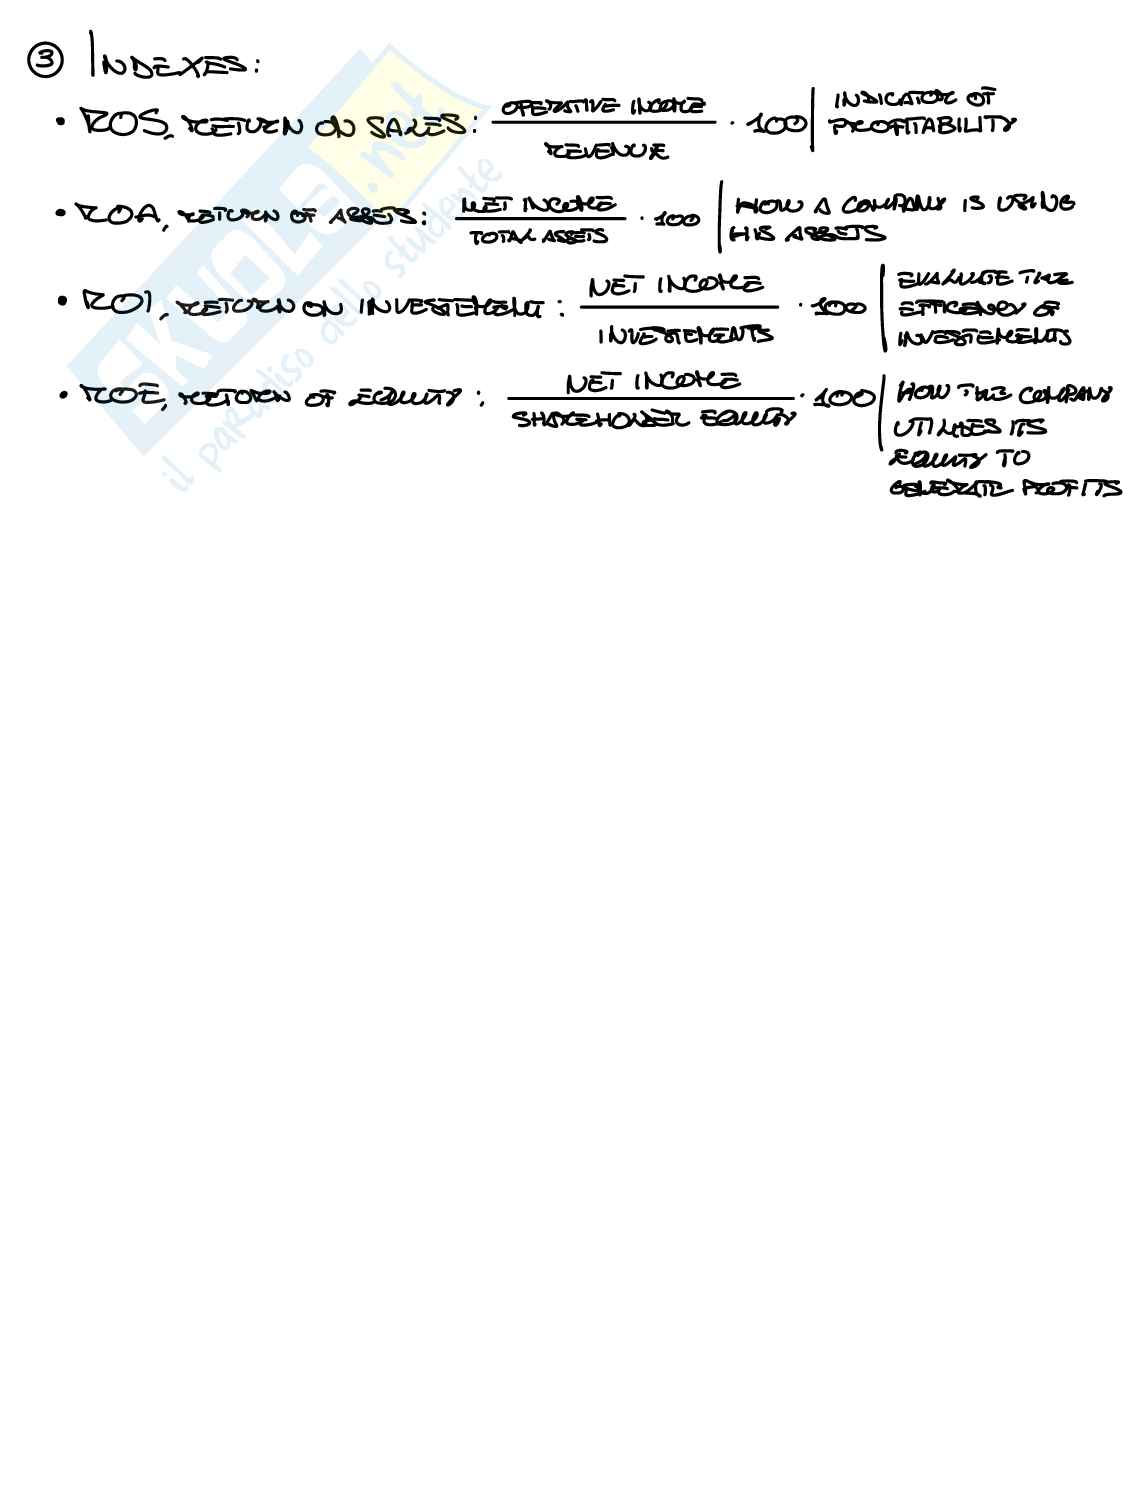 ③ INDEXES:
• ROS, RETURN ON SALES: OPERATIVE INCOME / REVENUE · 100 | INDICATOR OF PROFITABILITY
• ROA, RETURN OF ASSETS: NET INCOME / TOTAL ASSETS · 100 | HOW A COMPANY IS USING HIS ASSETS
• ROI, RETURN ON INVESTEMENT: NET INCOME / INVESTEMENTS · 100 | EVALUATE THE EFFICENCY OF INVESTEMENTS
• ROE, RETORN OF EQUITY: NET INCOME / SHAREHOLDER EQUITY · 100 | HOW THE COMPANY UTILIZES ITS EQUITY TO GENERATE PROFITS
SKUOLA.net
il paradiso dello studente